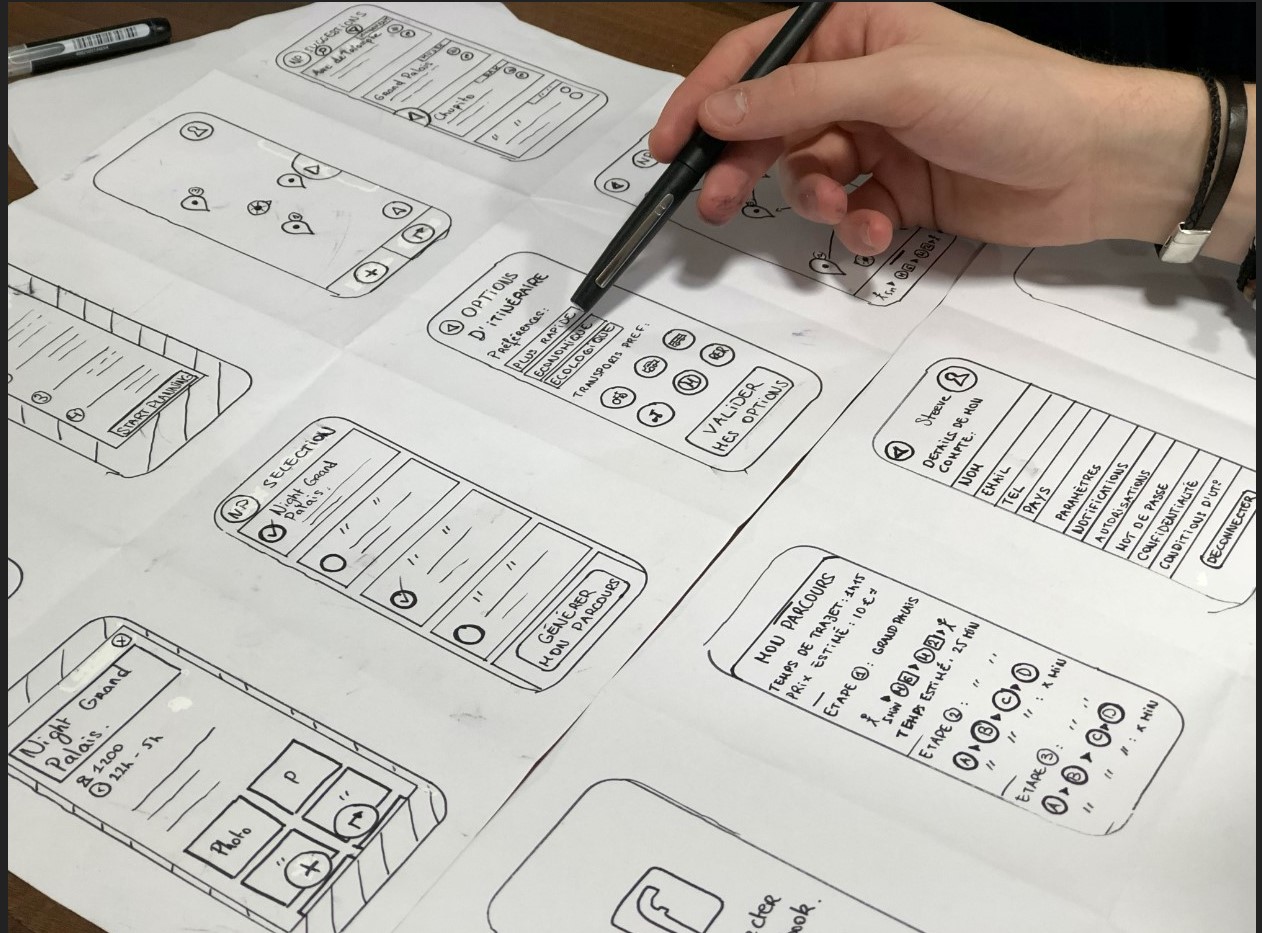 NP SUGGESTIONS
Grand Palais
Chupito
" "
3
4
NP
OPTIONS
D'ITINÉRAIRE
Préférences:
PLUS RAPIDE
ECONOMIQUE
ECOLOGIQUE
TRANSPORTS PREF:
RER
M
VALIDER
MES OPTIONS
3
4
START PLANNING
NP SELECTION
Night Grand
Palais.
" "
" "
" "
GÉNÉRER
MON PARCOURS
Steeve
DETAILS DE MON
COMPTE:
NOM
EMAIL
TEL
PAYS
PARAMÈTRES
NOTIFICATIONS
AUTORISATIONS
MOT DE PASSE
CONFIDENTIALITÉ
CONDITIONS D'UT°
DECONNECTER
MON PARCOURS
TEMPS DE TRAJET: 1H15
PRIX ESTIMÉ: 10€
ETAPE 1: GRAND PALAIS
5MIN
TEMPS ESTIMÉ. 25 MIN
ETAPE 2: " "
A B C D
" " ": X MIN
ETAPE 3: " "
A B C D
" " ": X MIN
Night Grand
Palais.
1200
22h - 5h
P
"
Photo
"
f
cter
ook.